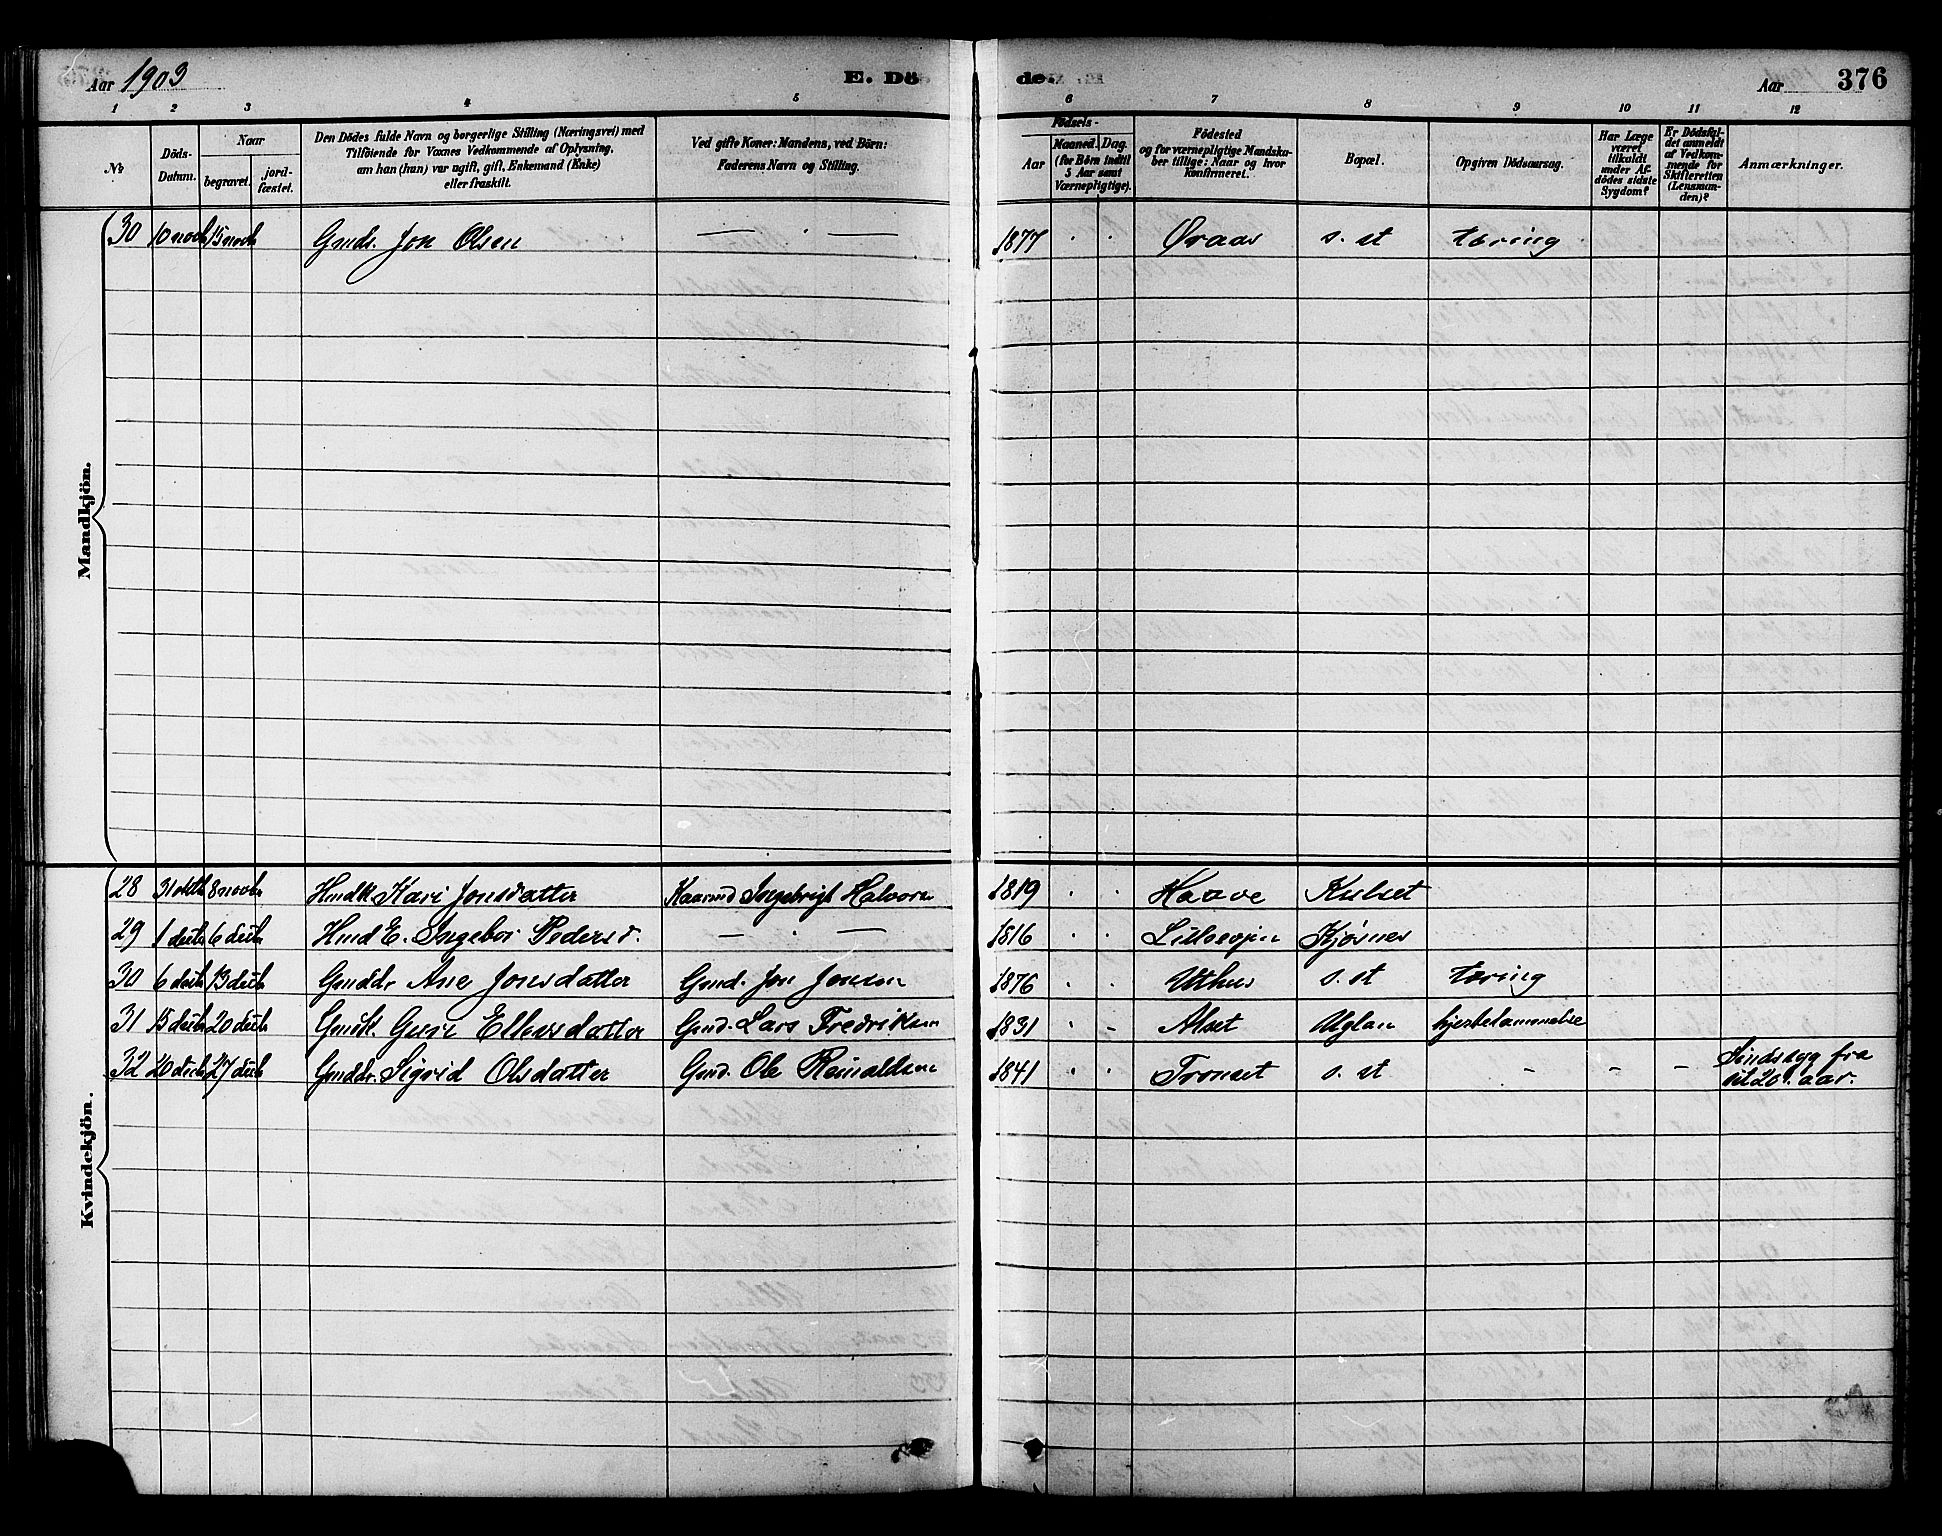 Aar 1903 E. Dö de. Aar 376
1 2 3 4 5 6 7 8 9 10 11 12
No Döds-Datum. Naar begravet. jordfæstet. Den Dödes fulde Navn og borgerlige Stilling (Næringsvei) med Tilföiende for Voxnes Vedkommende af Oplysning, om han (hun) var ugift, gift, Enkemand (Enke) eller fraskilt. Ved gifte Koner: Mandens, ved Börn: Faderens Navn og Stilling. Födsels- Aar Maaned. Dag. (for Börn indtil 5 Aar samt Værnepligtige). Födested og for værnepligtige Mandskaber tillige: Naar og hvor Konfirmeret. Bopæl. Opgiven Dödsaarsag. Har Læge været tilkaldt under Afdödes sidste Sygdom? Er Dödsfaldet anmeldt af Vedkommende for Skifteretten (Lensmanden)? Anmærkninger.
Mandkjön.
30 10 novb 15 novb Gmds. Jon Olsen — · — 1877 · · Øraas s. st tæring
Kvindekjön.
28 31 oktb 8 novb Hmdk Kari Jonsdatter Kaarmd Ingebrigt Halvors 1819 · · Haave Kulset
29 1 decb 6 decb Hmd E. Ingebor Pedersd. — · — 1816 · · Kjøsnes
30 6 decb 13 decb Gmddr Ane Jonsdatter Gmd. Jon Jonsen 1876 · · Uthus s. st tæring
31 15 decb 20 decb Gmdk. Guri Ellevsdatter Gmd. Lars Fredriksen 1831 · - Alset Uglan
32 20 decb 27 decb Gmddr. Sigrid Olsdatter Gmd. Ole Reinaldsen 1841 · · Tronset s. st - - - Sindssyg fra
sit 20. aar.